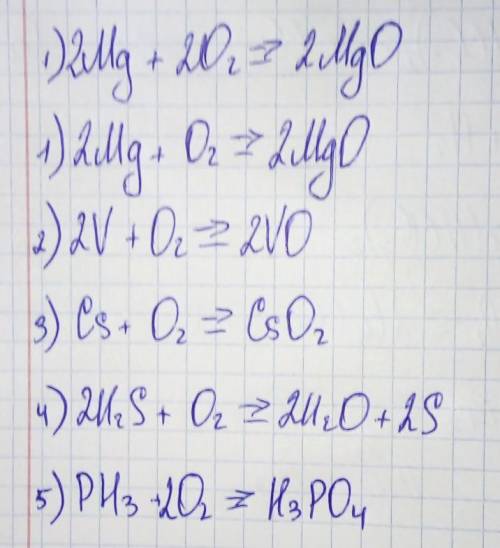 1) 2Mg + 2O₂ ⇒ 2MgO
1) 2Mg + O₂ ⇒ 2MgO
2) 2V + O₂ ⇒ 2VO
3) Cs + O₂ ⇒ CsO₂
4) 2H₂S + O₂ ⇒ 2H₂O + 2S
5) PH₃ + 2O₂ = H₃PO₄